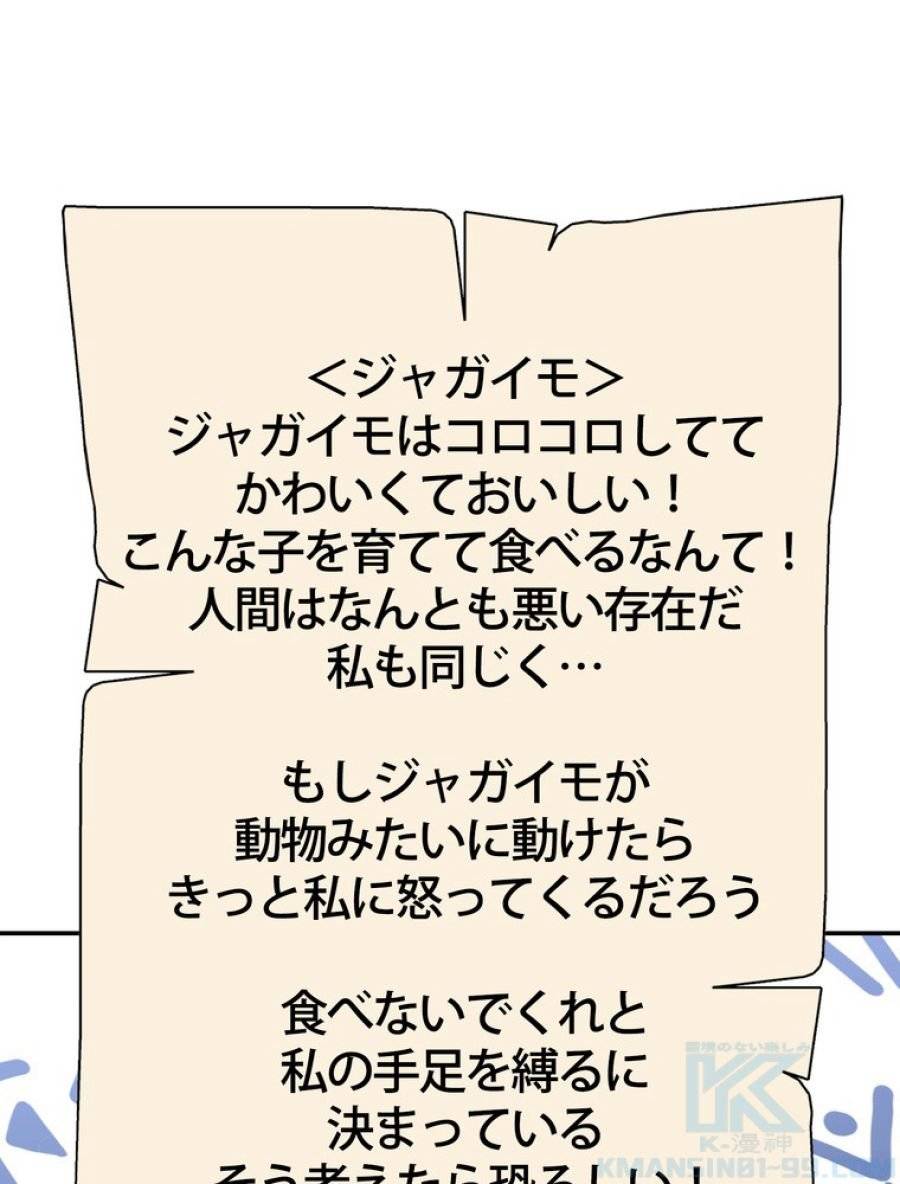 ＜ジャガイモ＞
ジャガイモはコロコロしてて
かわいくておいしい！
こんな子を育てて食べるなんて！
人間はなんとも悪い存在だ
私も同じく…
もしジャガイモが
動物みたいに動けたら
きっと私に怒ってくるだろう
食べないでくれと
私の手足を縛るに
決まっている
そう考えたら恐ろしい！
国境のない楽しみ
K-漫神
KMANSIN01-99.COM